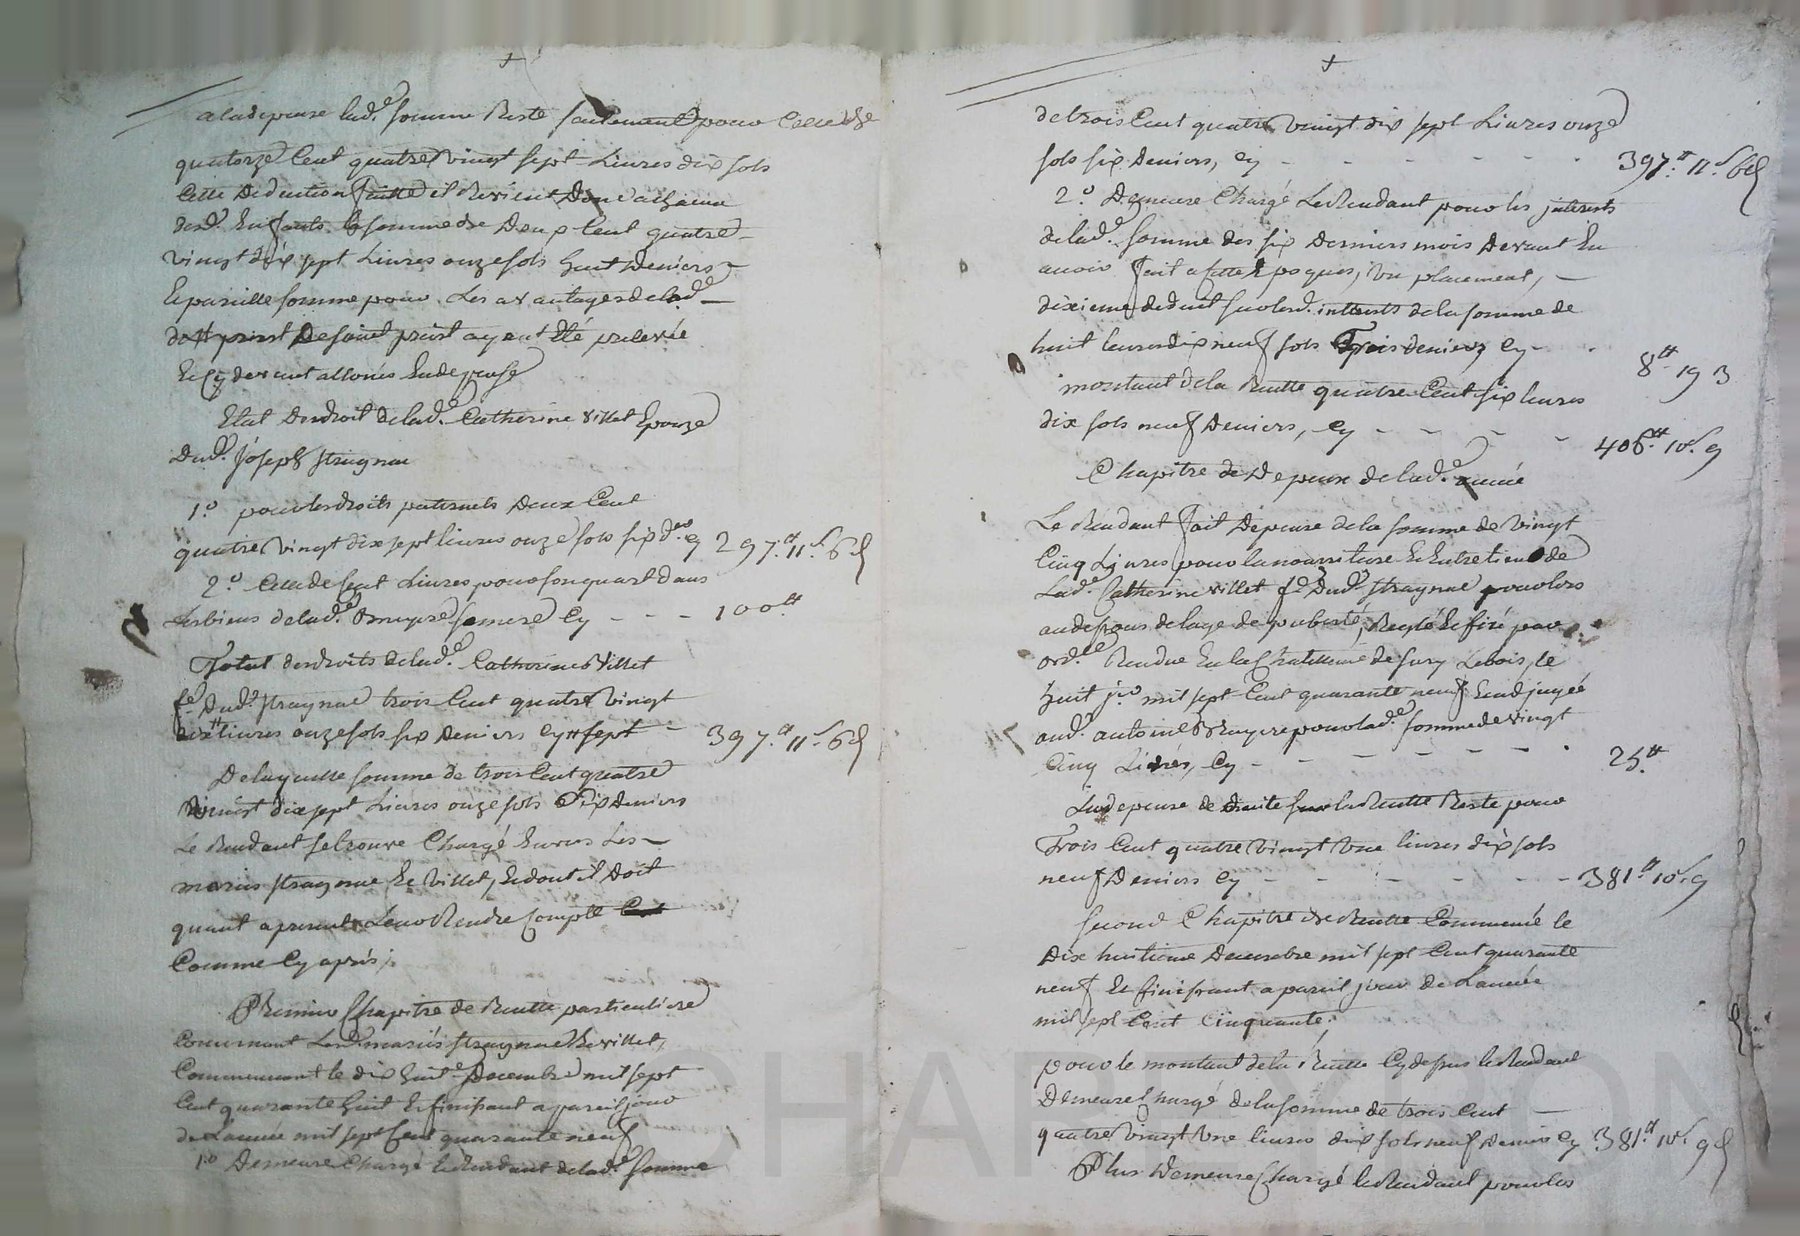 a la depense lad.e somme Reste seulement pour
quatorze Cent quatre vingt sept Livres dix sols
Cette Deduction faitte il Revient Donc a chacun
desd. Enfants la somme de Deux Cent quatre
vingt dix sept Livres onze sols huit Deniers
Et pareille somme pour Les avantages de lad.e
ayant Eté prelevée
Et cy devant alloués En depense
Etat Des droit de lad.e Catherine villet Epouze
Dud. joseph straynac
1.o pour les droits paternels Deux Cent
quatre vingt dix sept livres onze sols six d.ers cy 297.tt 11.s 6d
2.o Cent Livres pour son quart dans
Les biens de lad.e Bruyere sa mere Cy - - - 100.tt
Total des droits de lad.e Catherine Villet
f.e Dud. straynac trois Cent quatre vingt
dix livres onze sols six Deniers cy # sept - 397.tt 11.s 6d
De laquelle somme de trois Cent quatre
vingt dix sept Livres onze sols Six Deniers
Le Rendant se trouve Chargé Envers Les
mariés straynac Et Villet, Et dont il Doit
quant a present Leur Rendre Compte
Comme Cy aprés;
Premier Chapitre de Recette particuliere
Concernant Lesd. mariés straynac Et villet,
Commencant le dix huit.e Decembre mil sept
Cent quarante huit Et finissant a pareil jour
de L'année mil sept Cent quarante neuf
1.o Demeure Chargé le Rendant de lad.e somme
de trois Cent quatre vingt dix sept Livres onze
sols six Deniers, Cy - - - - - 397.tt 11.s 6d
2.o Demeure Chargé Le Rendant pour les interets
de lad.e somme des six Derniers mois Devant En
avoir fait a cette Epoque, Un placement,
dixieme deduit sur lesd. interets de la somme de
huit livres dix neuf sols Trois deniers Cy - - 8tt 19 3
montant de la Recette quatre Cent six livres
dix sols neuf Deniers, Cy - - - - 406.tt 10.s 9
Chapitre de Depense de lad.e année
Le Rendant fait Depense de la somme de vingt
Cinq Livres pour la nourriture Et Entretien de
Lad.e Catherine villet f.e Dud. straynac pour lors
au dessous de l'age de puberté, Reglé Et fixé par
ord.ce Rendue En la Chatellenie de Sury Lebois, le
huit j.er mil sept Cent quarante neuf Et adjugée
aud. antoine Bruyere pour lad.e somme de vingt
Cinq Livres, Cy - - - - - 25.tt
La depense de droite sur la Recette Reste pour
Trois Cent quatre vingt Une livres dix sols
neuf Deniers Cy - - - - - 381.tt 10.s 9
Second Chapitre de Recette Commencé le
Dix huitieme Decembre mil sept Cent quarante
neuf Et finissant a pareil jour de L'année
mil sept Cent Cinquante;
pour le montant de la Recette Cy dessus le Rendant
Demeure Chargé de la somme de trois Cent
quatre vingt Une livres dix sols neuf Deniers Cy 381.tt 10.s 9d
Plus Demeure Chargé le Rendant pour les